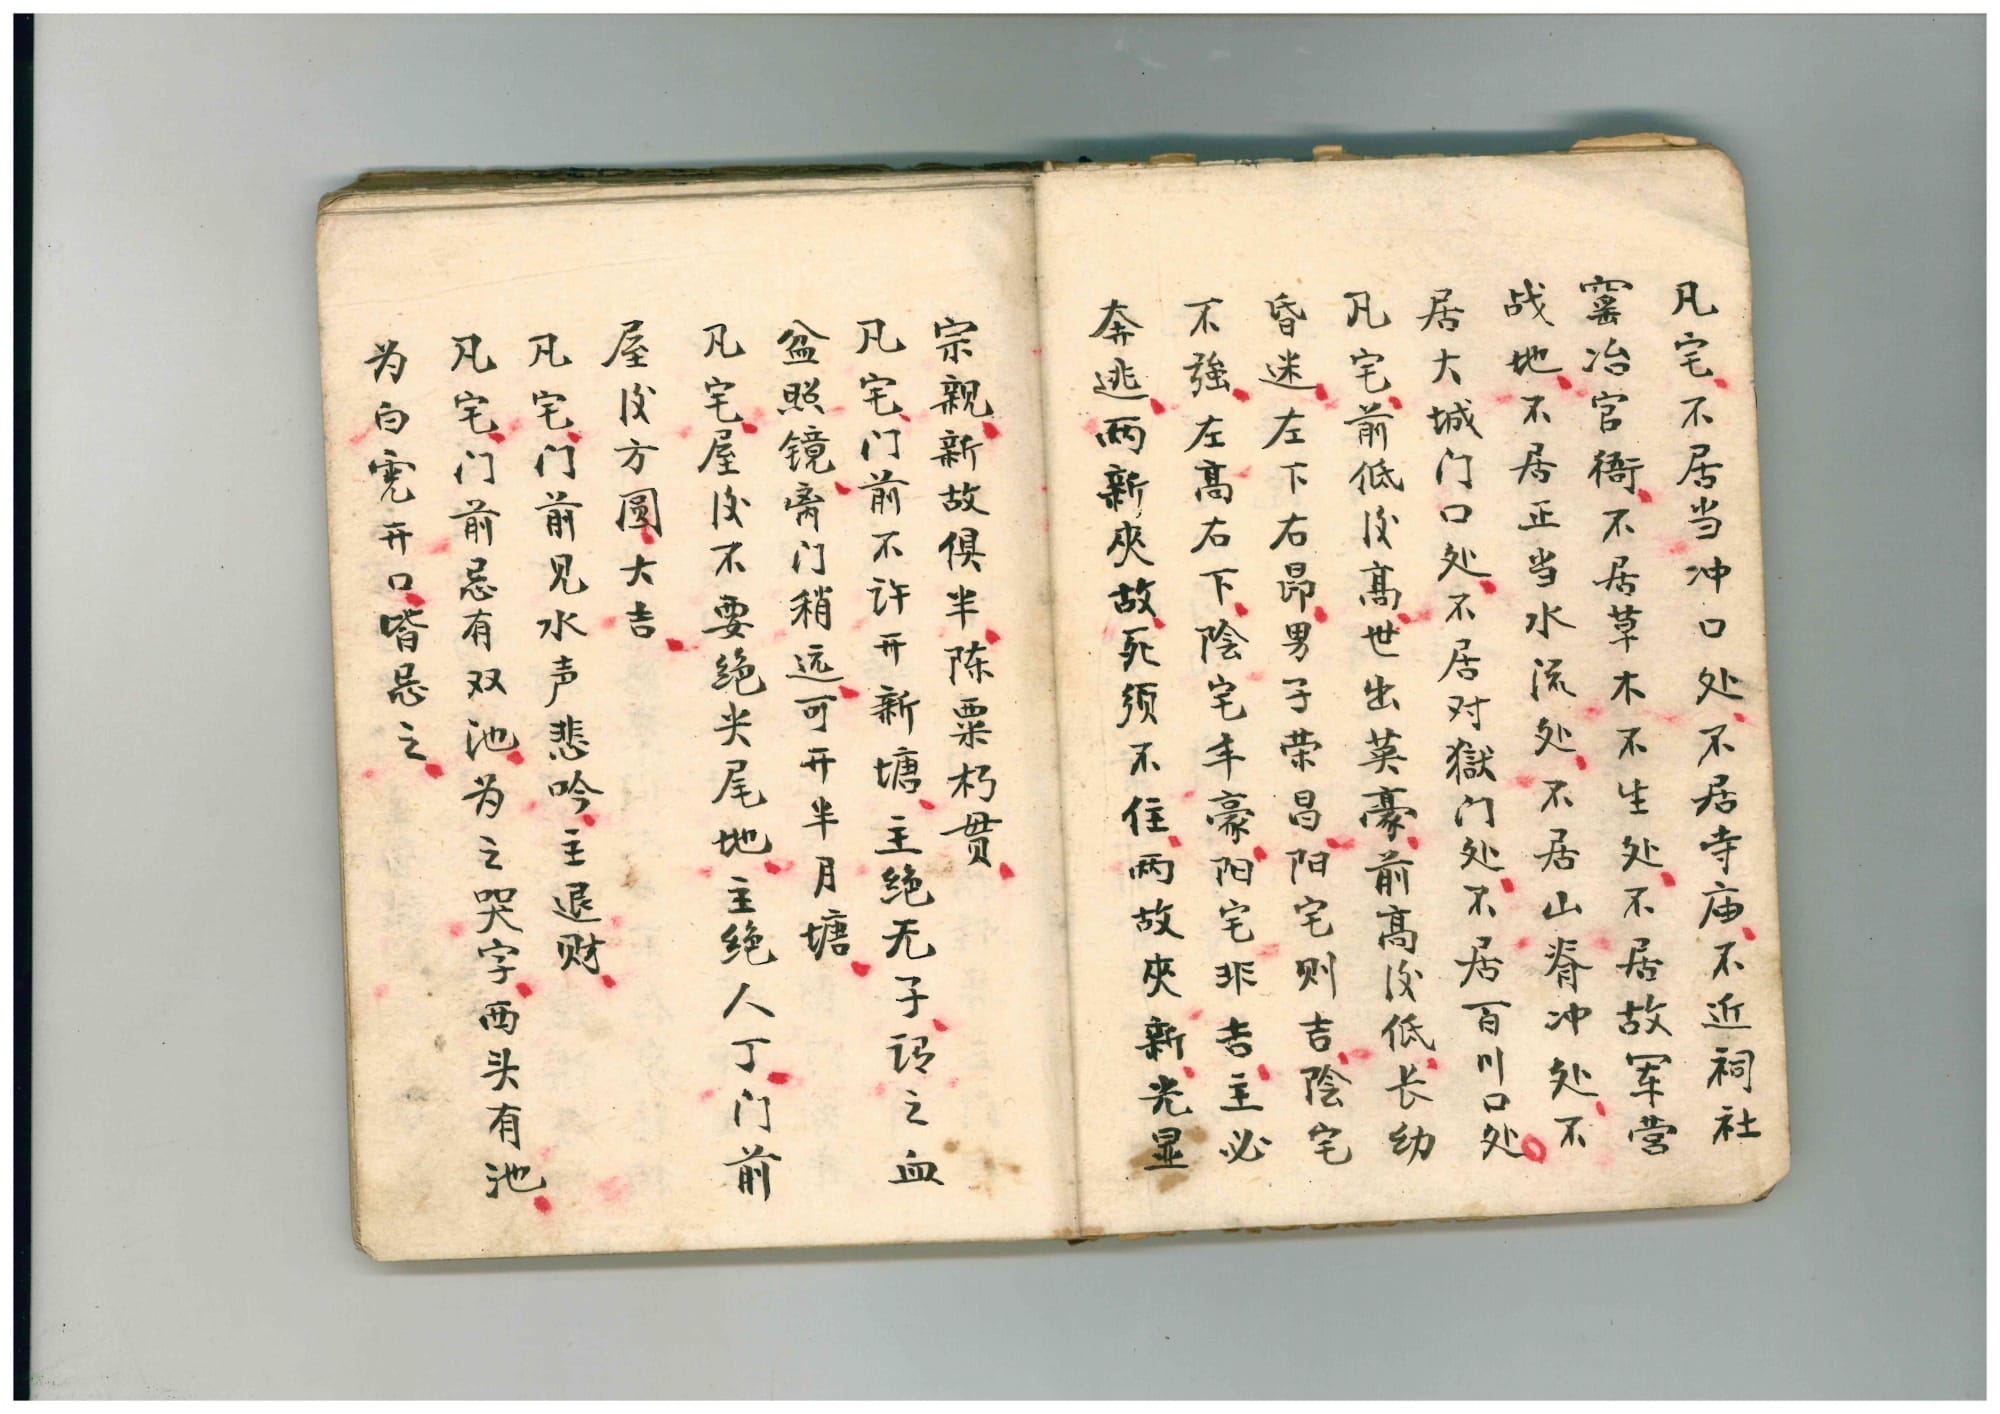 凡宅不居当冲口处不居寺庙不近祠社
窑冶官衙不居草木不生处不居故军营
战地不居正当水流处不居山脊冲处不
居大城门口处不居对獄门处不居百川口处
凡宅前低后高世出英豪前高后低长幼
昏迷左下右昂男子荣昌阳宅则吉陰宅
不強左高右下陰宅丰豪阳宅非吉主必
奔逃两新夾故死须不住两故夾新光显
宗親新故俱半陈粟朽贯
凡宅门前不许开新塘主绝无子谓之血
盆照镜离门稍远可开半月塘
凡宅屋后不要绝尖尾地主绝人丁门前
屋后方圆大吉
凡宅门前见水声悲吟主退财
凡宅门前忌有双池为之哭字西头有池
为白虎开口皆忌之